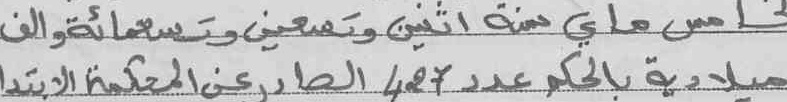 خامس ماي سنة اثنين وتسعين وتسعمائة والف
ميلادية بالحكم عدد 427 الصادر عن المحكمة الابتدا